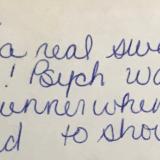 a real swe
! Psych wa
unner when
d to show